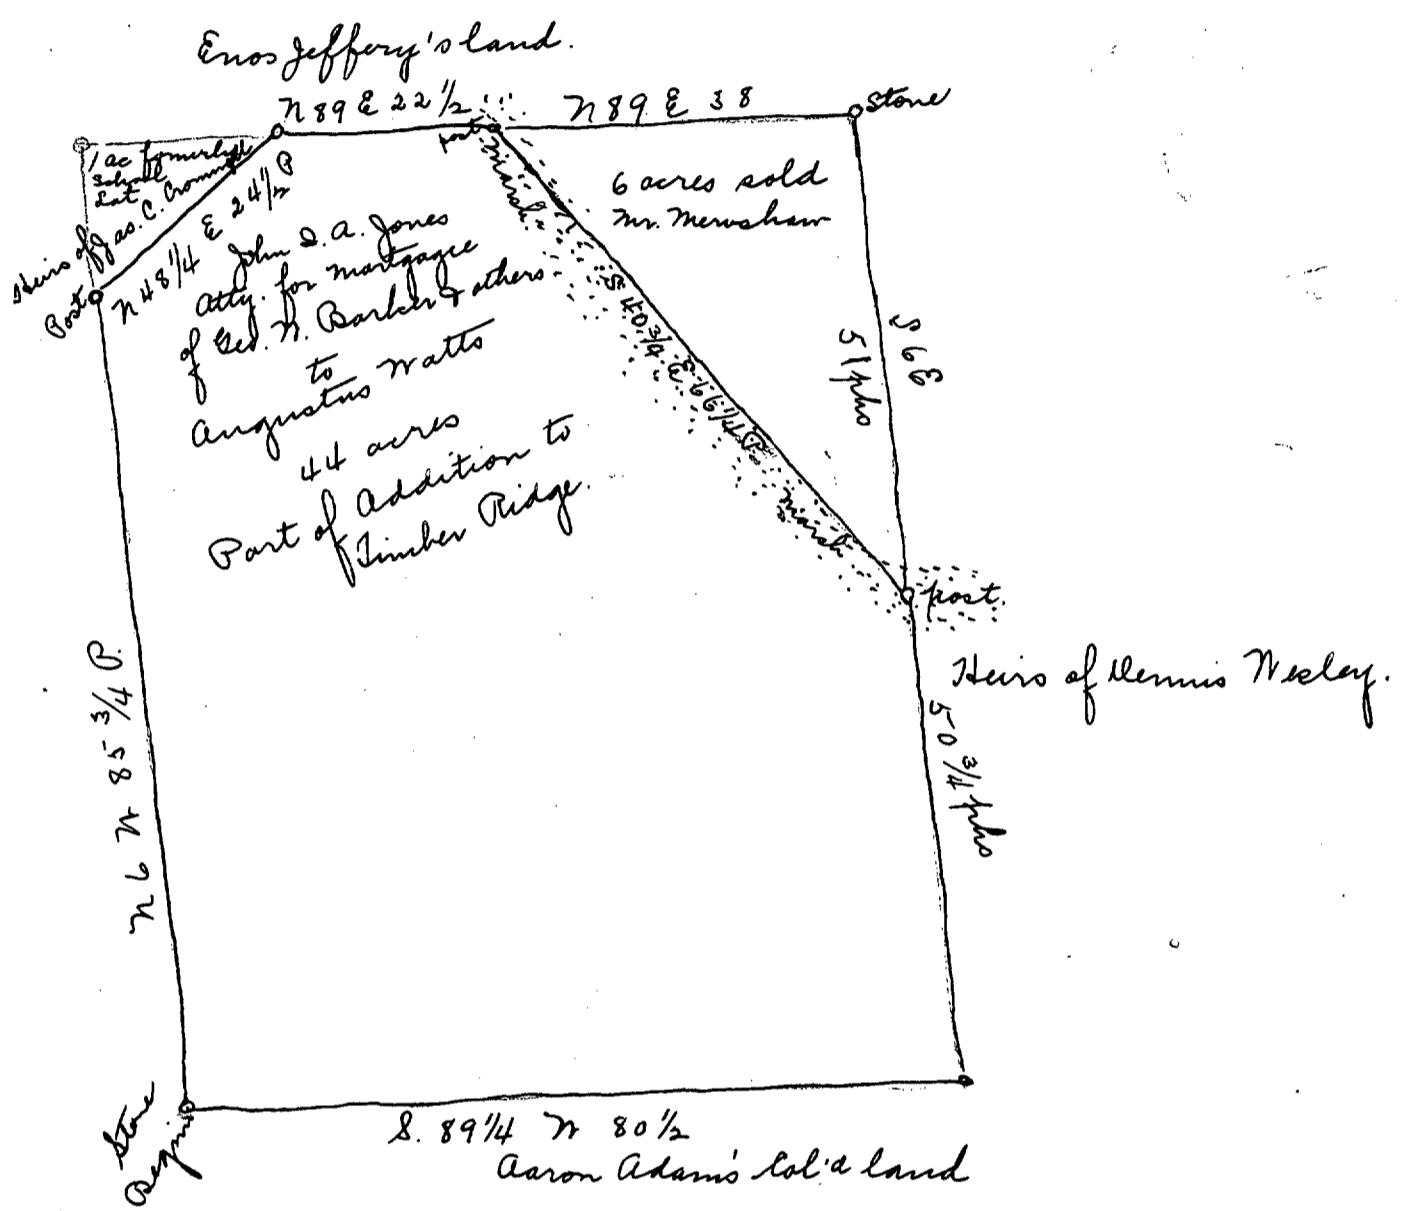 Enos Jeffery's land.
N 89 E 22 1/2
N 89 E 38
Stone
post
marsh
1 ac formerly
School
Lot
Heirs of Jas. C.
Post
N 48 1/4 E 24 1/2 P
6 acres sold
Mr. Mershaw
John A. Jones
Atty. for Mortgagee
of Geo. W. Barker & others
to
Augustus Watts
44 acres
Part of Addition to
Timber Ridge.
S 40 3/4 E 66 1/4 P.
marsh
S 6 E
51 phs
post.
Heirs of Dennis Wesley.
50 3/4 phs
N 6 W 85 3/4 P.
Stone
Begin
S. 89 1/4 W 80 1/2
Aaron Adams Col'd land